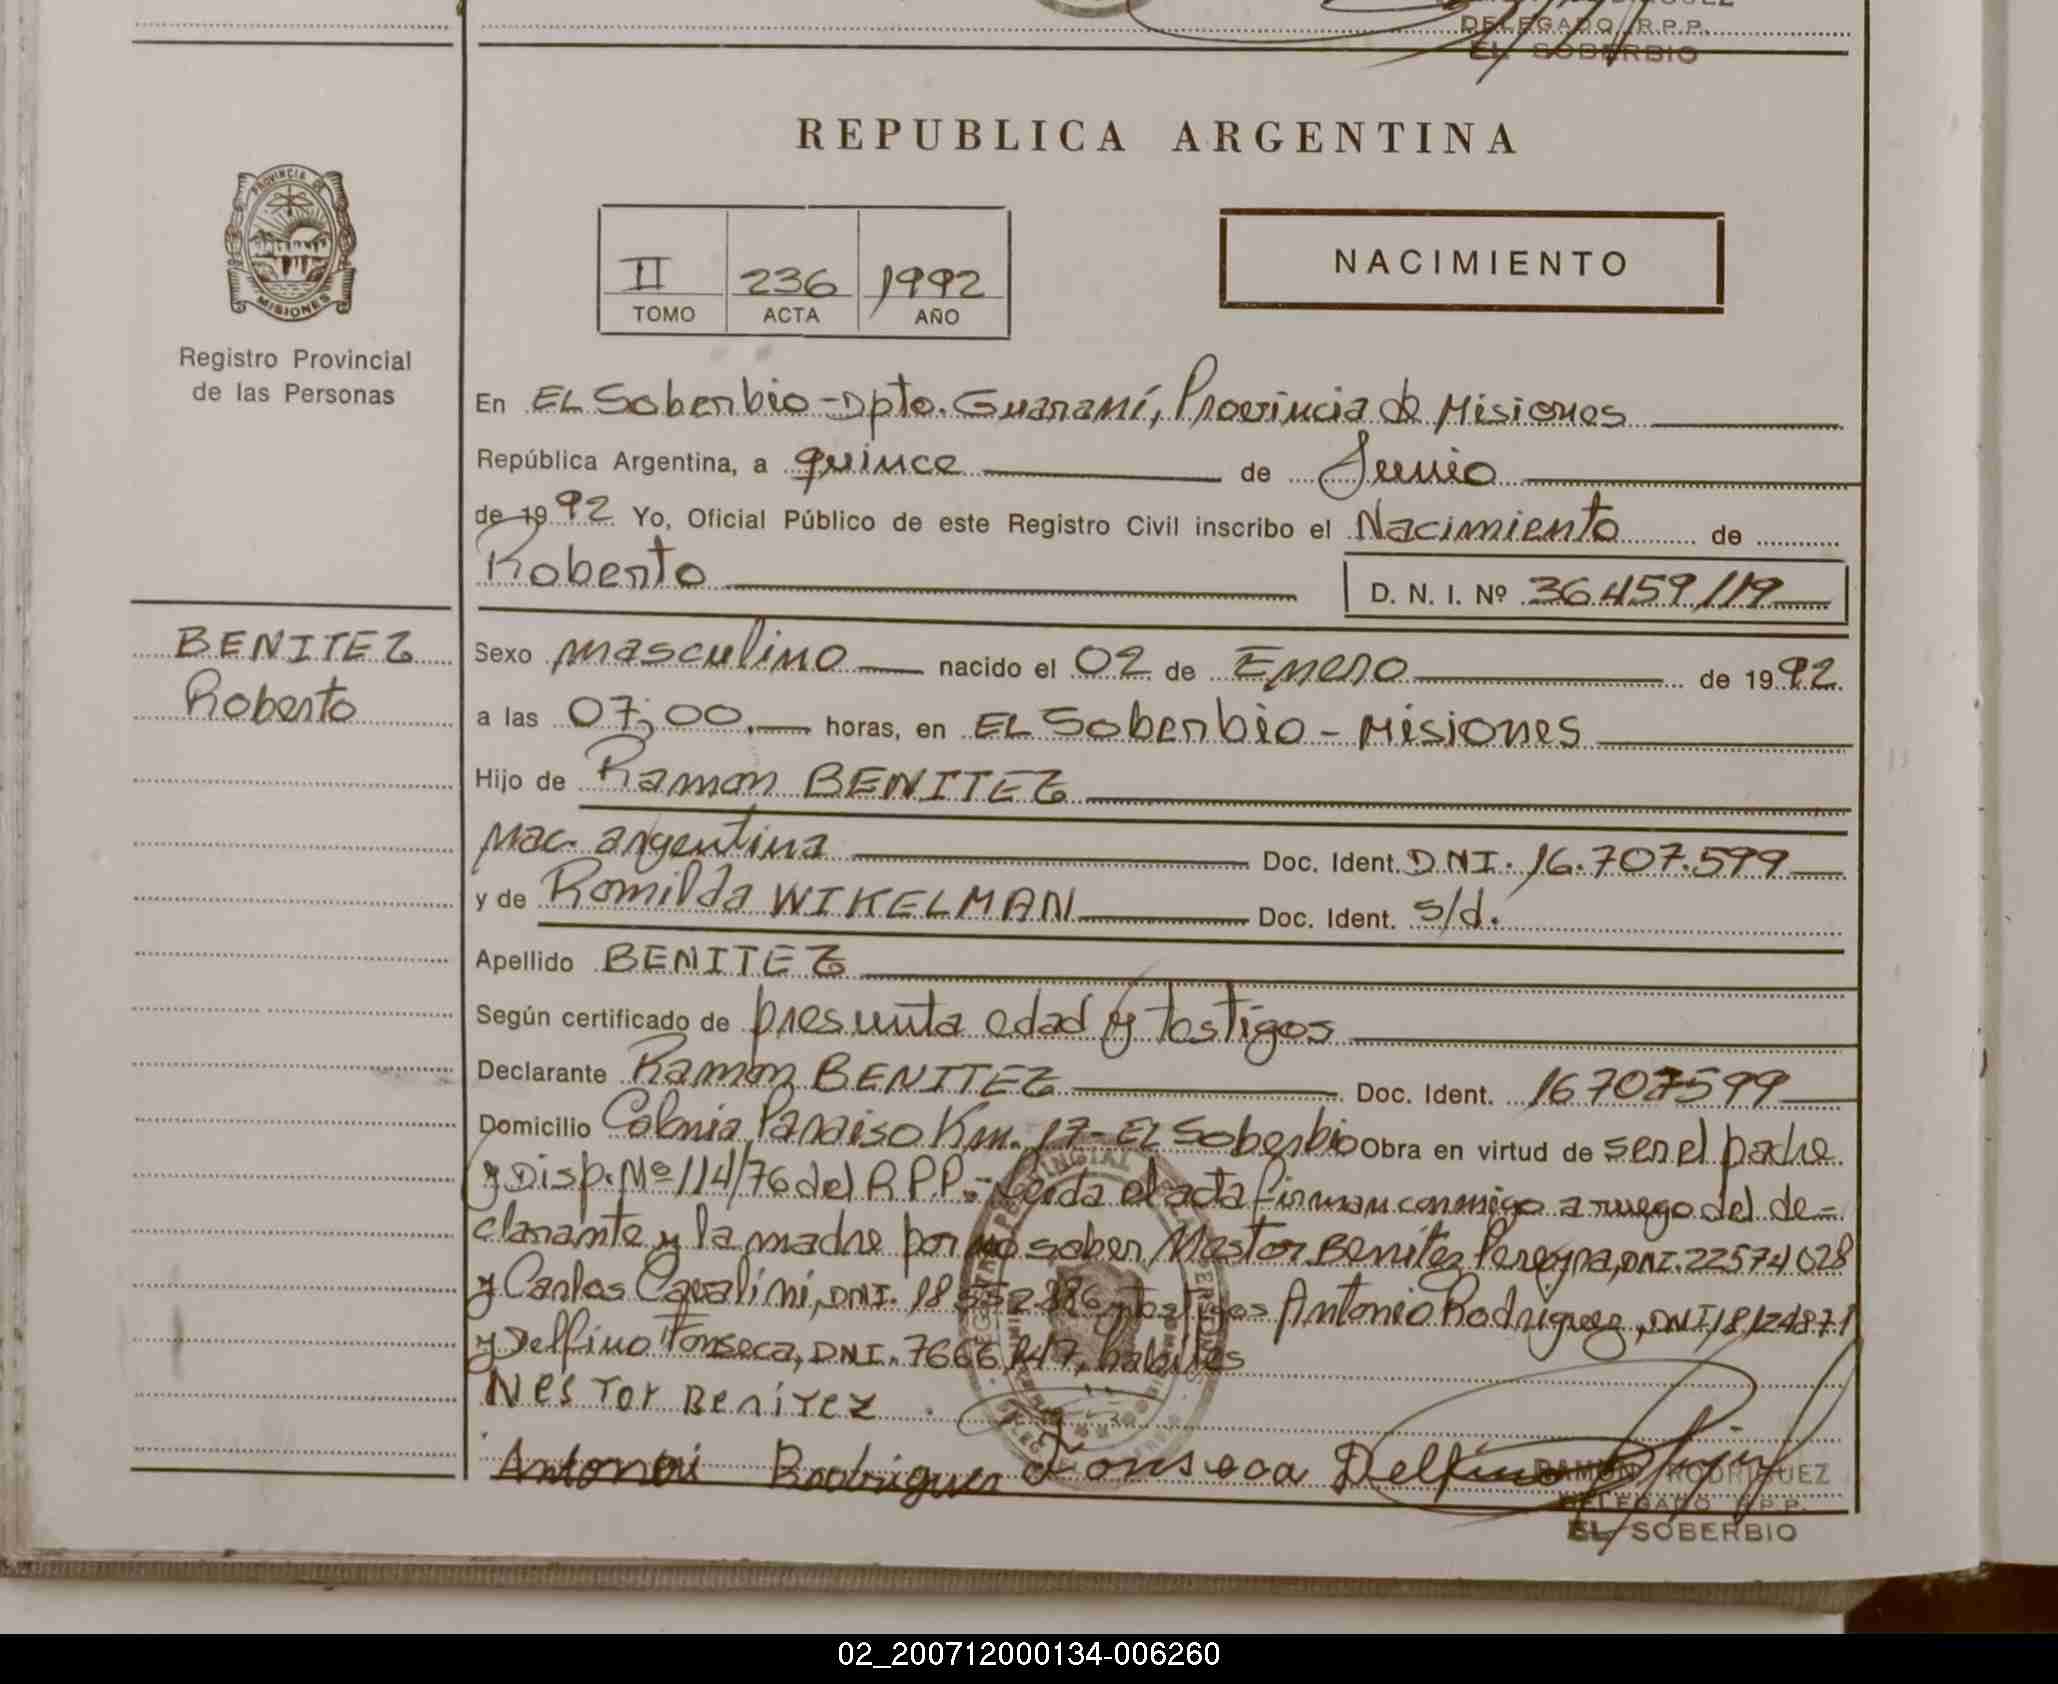 DELEGADO R.P.P.
EL SOBERBIO
REPUBLICA ARGENTINA
PROVINCIA DE
MISIONES
Registro Provincial
de las Personas
II 236 1992
TOMO ACTA AÑO
NACIMIENTO
En EL Soberbio - Dpto. Guaraní, Provincia de Misiones
República Argentina, a quince de Junio
de 1992 Yo, Oficial Público de este Registro Civil inscribo el Nacimiento de
Roberto D. N. I. Nº 36.459.119
BENITEZ
Roberto
Sexo masculino nacido el 02 de Enero de 1992.
a las 07,00. horas, en EL Soberbio - Misiones
Hijo de Ramon BENITEZ
Nac. argentina Doc. Ident. DNI. 16.707.599
y de Romilda WIKELMAN Doc. Ident. s/d.
Apellido BENITEZ
Según certificado de presunta edad y testigos
Declarante Ramon BENITEZ Doc. Ident. 16707599
Domicilio Colonia Paraiso Km. 17 - EL Soberbio Obra en virtud de ser el padre
y Disp. Nº 114/76 del R.P.P.- Leida el acta firman conmigo a ruego del de-
clarante y la madre por no saber, Nestor Benitez Pereyra, DNI. 22574028
y Carlos Cavalini, DNI. 18 y testigos Antonio Rodriguez, DNI 18124871
y Delfino Fonseca, DNI. 7666 habiles
Nestor Benitez
Antonio Rodriguez Fonseca Delfino
RAMON RODRIGUEZ
DELEGADO R.P.P.
EL SOBERBIO
02_200712000134-006260